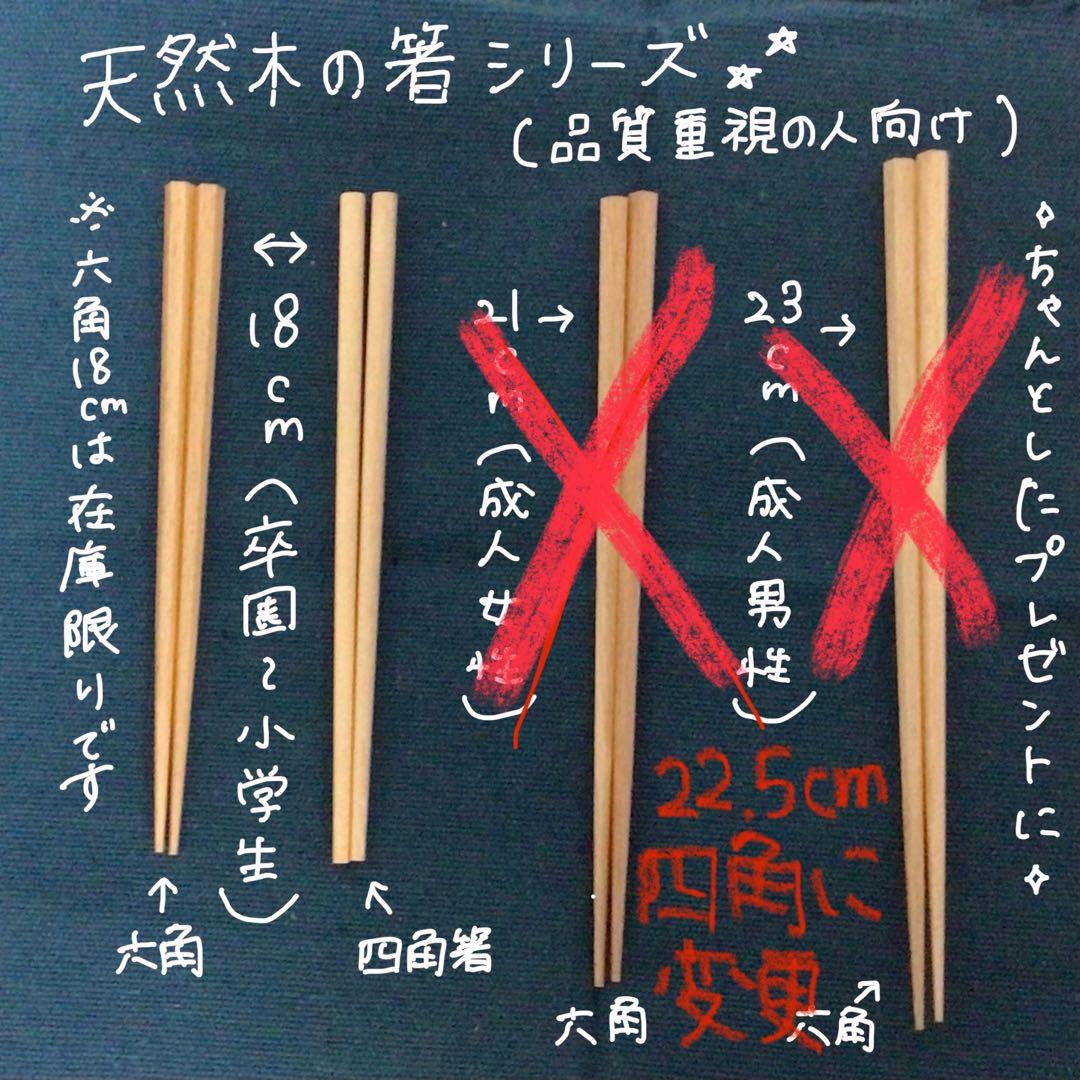 天然木の箸シリーズ
(品質重視の人向け)
※六角18cmは在庫限りです
18cm(卒園~小学生)
21cm(成人女性)
23cm(成人男性)
ちゃんとしたプレゼントに
22.5cm
四角に
変更
六角
四角箸
六角
六角